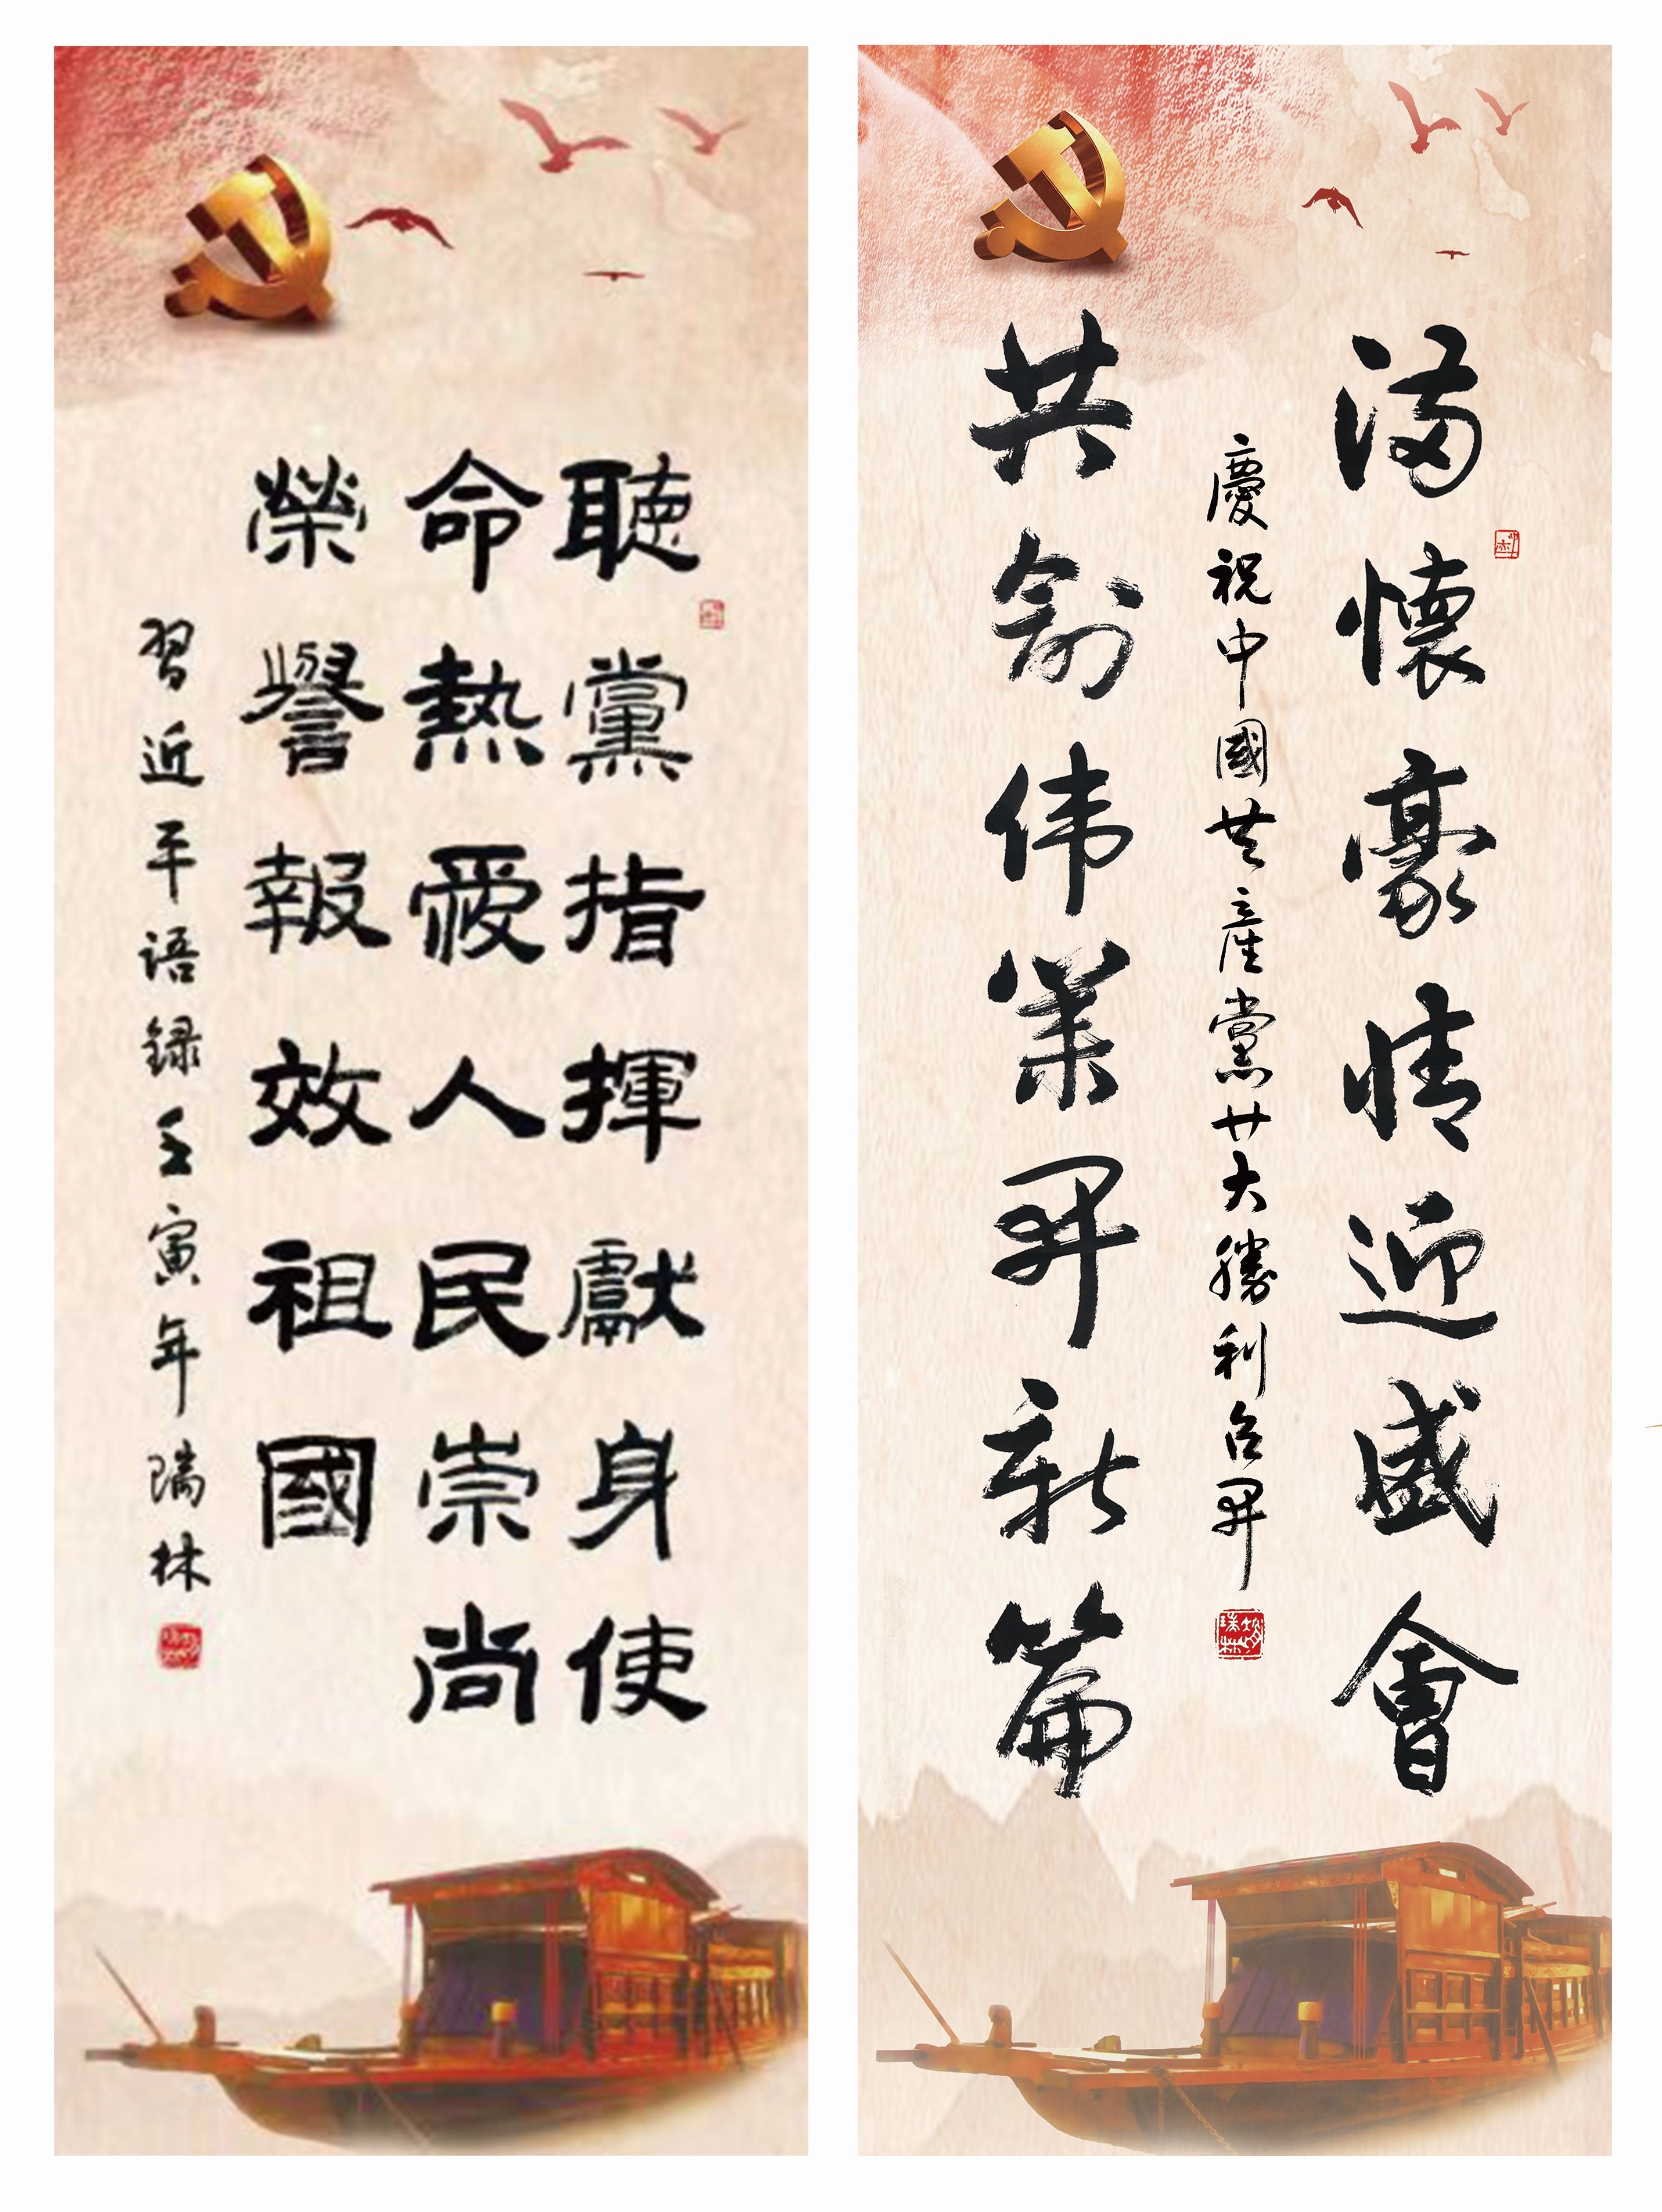 滿懷豪情近盛會
慶祝中國共產黨廿大勝利召開
共創伟業開新篇
聽黨指揮獻身使
命熱愛人民崇尚
榮譽報效祖國
習近平语録壬寅年瑞林